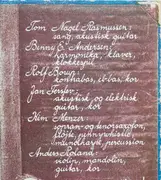 Tom Nagel Rasmussen:
sang, akustisk guitar
Benny E. Andersen:
harmonika, klaver,
klokkespil
Rolf
kontrabas, el-bas, kor
Jan
akustisk og elektrisk
guitar, kor
Nim Menzer
sopran- og tenorsaxofon,
fløjte,
mundharpe, percussion
Anders Roland:
violin, mandolin,
guitar, kor